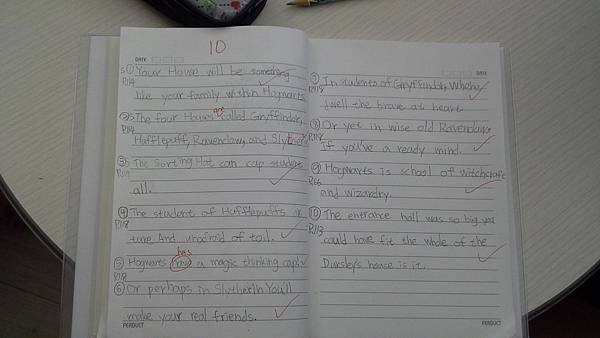 10
DATE
①Your House will be something
P.114
like your family within Hogwarts
②The four Houses are called Gryffindor,
P.114
Hufflepuff, Ravenclaw, and Slytherin
③The Sorting Hat can cap
all.
④The student of Hufflepuffs
P.118
ture And unafraid of toil.
⑤Hogwarts have a magic thinking cap!
has
P.118
⑥Or perhaps in Slytherin You'll
make your real friends.
PERDUCT
DATE
⑦In students of Gryffindor, Where
P.118
dwell the brave at heart
⑧Or yet in wise old Ravenclaw
P.118
If you've a ready mind.
⑨Hogwarts is school of witchcraft
and wizardry.
⑩The entrance hall was so big you
P.113
could have fit the whole of the
Dursley's house is it.
PERDUCT